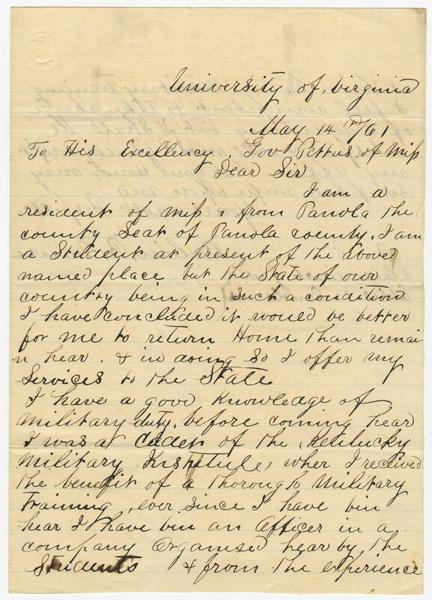 University of Virginia
May 14th/61
To His Excellency Gov Pettus of Miss
Dear Sir
I am a
resident of miss & from Panola the
county Seat of Panola county. I am
a Student at present of the above
named place but the State of our
country being in such a condition
I have concluded it would be better
for me to return Home than remai
n hear. & in doing so I offer my
Services to the State
I have a good knowledge of
military duty, before coming hear
I was at Cadet of the Kentucky
Military Institute, wher I received
the benefit of a thorough Military
Training, ever since I have bin
hear I have bin an Officer in a
company Organised hear by the
Students & from the experience